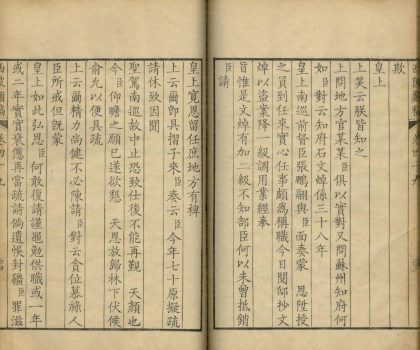 歎
皇上
上笑云朕皆知之
上問地方官某某臣俱以實對又問蘇州知府何
如臣對云知府石文焯係三十八年
皇上南巡前督臣張鵬翮與臣面奏蒙 恩陞授
之員到任來實心任事頗為稱職今日閱邸抄文
焯以盜案降 級調用業經奉
旨惟是文焯有加二級不知部臣何以未曾抵銷
臣請
皇上寬恩留任庶地方有裨
上云爾即具摺子來臣奏云臣今年七十原擬疏
請休致因聞
聖駕南巡故中止恐致仕後不能再覲 天顏也
今臣仰瞻之願已遂欲懇 天恩放歸林下伏候
俞允以便具疏
上云爾精力尚健不必陳請臣對云貪位慕祿人
臣所戒但既蒙
皇上如此弘恩臣何敢復請謹黽勉供職或一年
或二年實實衰憊再當疏請倘遺悞封疆臣罪滋
西陂類稿 卷四十九